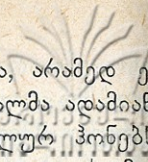 ა, არამედ ე
ალმა ადამიან
ლურ ჰონებს